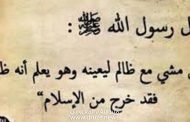 ل رسول الله ﷺ :
ن مشي مع ظالم ليعينه وهو يعلم أنه ظا
فقد خرج من الإسلام"